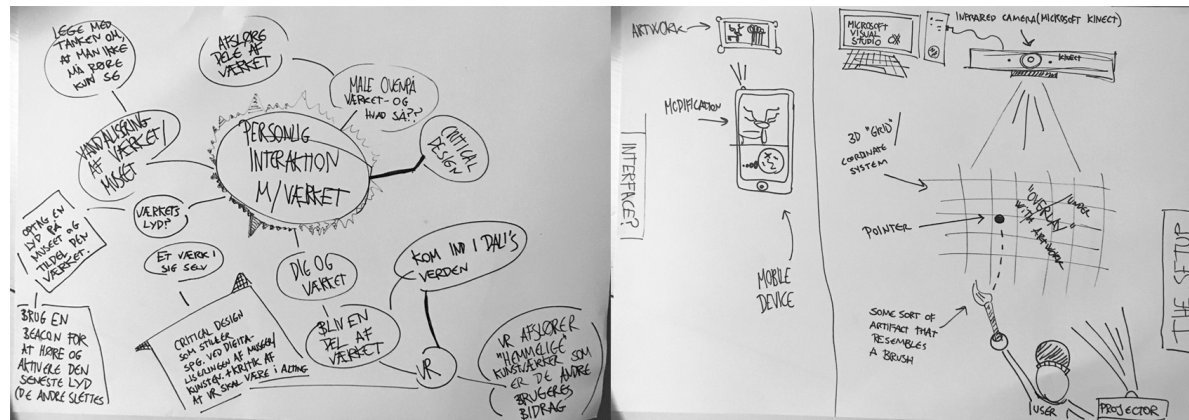 LEGE MED
TANKEN OM,
AT MAN IKKE
MÅ RØRE
KUN SE
AFSLØRE
DELE AF
VÆRKET
MALE OVENPÅ
VÆRKET - OG
HVAD SÅ??
CRITICAL
DESIGN
VANDALISERING
AF VÆRKET/
MUSEET
PERSONLIG
INTERAKTION
M/VÆRKET
OPTAG EN
LYD PÅ
MUSEET OG
TILDEL DEN
VÆRKET.
VÆRKETS
LYD?
ET VÆRK I
SIG SELV
DIG OG
VÆRKET
KOM IND I DALI'S
VERDEN
BRUG EN
BEACON FOR
AT HØRE OG
AKTIVERE DEN
SENESTE LYD
(DE ANDRE SLETTES
CRITICAL DESIGN
SOM STILLER
SPG. VED DIGITA-
LISERINGEN AF MUSEER/
KUNSTEN + KRITIK AF
AT VR SKAL VÆRE I ALTING
BLIV EN
DEL AF
VÆRKET
VR
VR AFSLØRER
"HEMMELIGE"
KUNSTVÆRKER SOM
ER DE ANDRE
BRUGERES
BIDRAG
ARTWORK
MODIFICATION
INTERFACE?
MOBILE
DEVICE
MICROSOFT
VISUAL
STUDIO
INFRARED CAMERA (MICROSOFT KINECT)
KINECT
3D "GRID"/
COORDINATE
SYSTEM
"OVERLAY"/UNDER
WITH ARTWORK
POINTER
SOME SORT OF
ARTIFACT THAT
RESEMBLES
A BRUSH
USER
PROJECTOR
THE SETUP